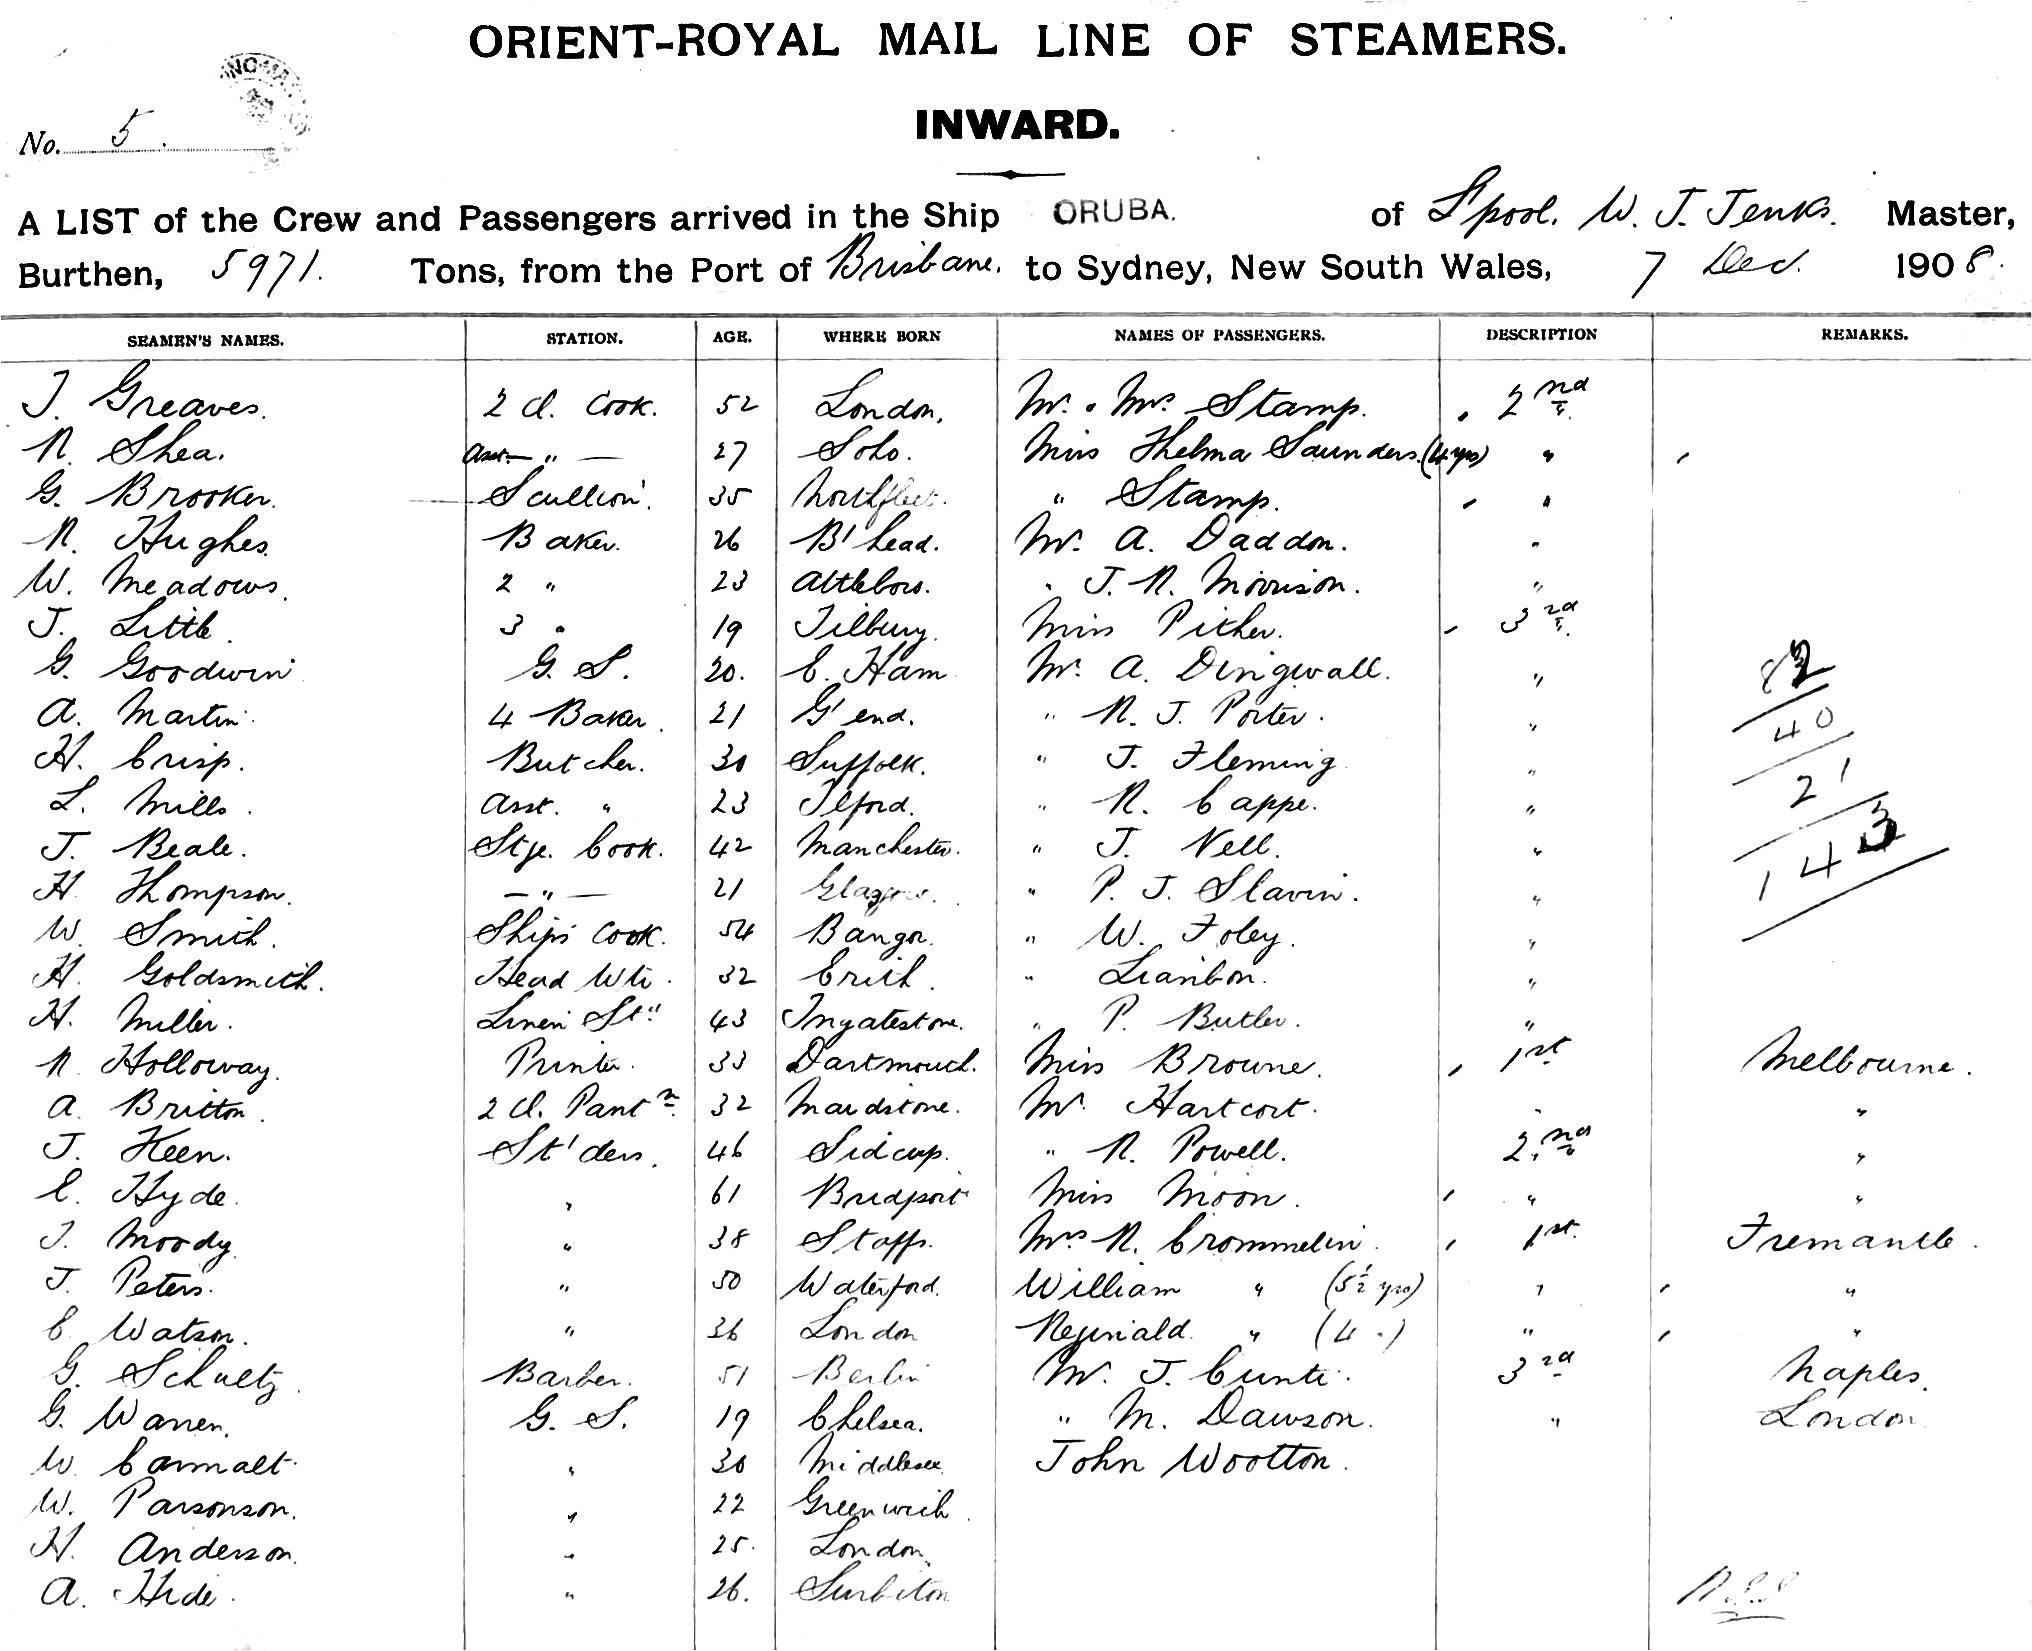 ORIENT-ROYAL MAIL LINE OF STEAMERS.
INWARD.
No. 5.
A LIST of the Crew and Passengers arrived in the Ship ORUBA. of L'pool. W. J. Jenks. Master,
Burthen, 5971. Tons, from the Port of Brisbane. to Sydney, New South Wales, 7 Dec. 1908.
SEAMEN'S NAMES. STATION. AGE. WHERE BORN NAMES OF PASSENGERS. DESCRIPTION REMARKS.
J. Greaves. 2 Cl. Cook. 52 London. Mr. & Mrs Stamp. 2nd
R. Shea. Asst. — " — 27 Soho. Miss Thelma Saunders. (4 yrs) "
G. Brooker. Scullion. 35 Northfleet. " Stamp. "
R. Hughes. Baker. 26 B'head. Mr. A. Daddon. "
W. Meadows. 2 " 23 Attleboro. " J. R. Morrison. "
J. Little. 3 " 19 Tilbury. Miss Pither. 3rd
G. Goodwin G. S. 20. E. Ham Mr. A. Dingwall. "
A. Martin. 4 Baker. 21 G'end. " R. J. Porter. "
H. Crisp. Butcher. 30 Suffolk. " J. Fleming "
L. Mills. Asst. " 23 Ilford. " R. Cappe. "
J. Beale. Stge. Cook. 42 Manchester. " J. Nell. "
H. Thompson. — " — 21 Glasgow. " P. J. Slavin. "
W. Smith. Ships Cook. 54 Bangor. " W. Foley. "
H. Goldsmith. Head Wtr. 32 Erith. " "
H. Miller. Linen 43 Ingatestone. " P. Butler. "
R. Holloway. Printer. 33 Dartmouth. Miss Browne. 1st Melbourne.
A. Britton. 2 Cl. Pantn. 32 Maidstone. Mr. Hartcort. " "
J. Keen. St'ders. 46 Sidcup. " R. Powell. 2nd "
E. Hyde. " 61 Bridport Miss Moon. " "
J. Moody. " 38 Staffs. Mrs R. Crommelin. 1st. Fremantle.
J. Peters. " 50 Waterford. William " (5½ yrs) " "
C. Watson. " 36 London Reginald. " (4 ") " "
G. Schultz. Barber. 51 Berlin Mr. J. Cunti. 3rd Naples.
G. Warren. G. S. 19 Chelsea. " M. Dawson. " London
W. Carmalt. " 30 Middlesex. John Wootton.
W. Parsonson. " 22 Greenwich.
H. Anderson. " 25. London.
A. Hide. " 26. Surbiton
82
40
21
143